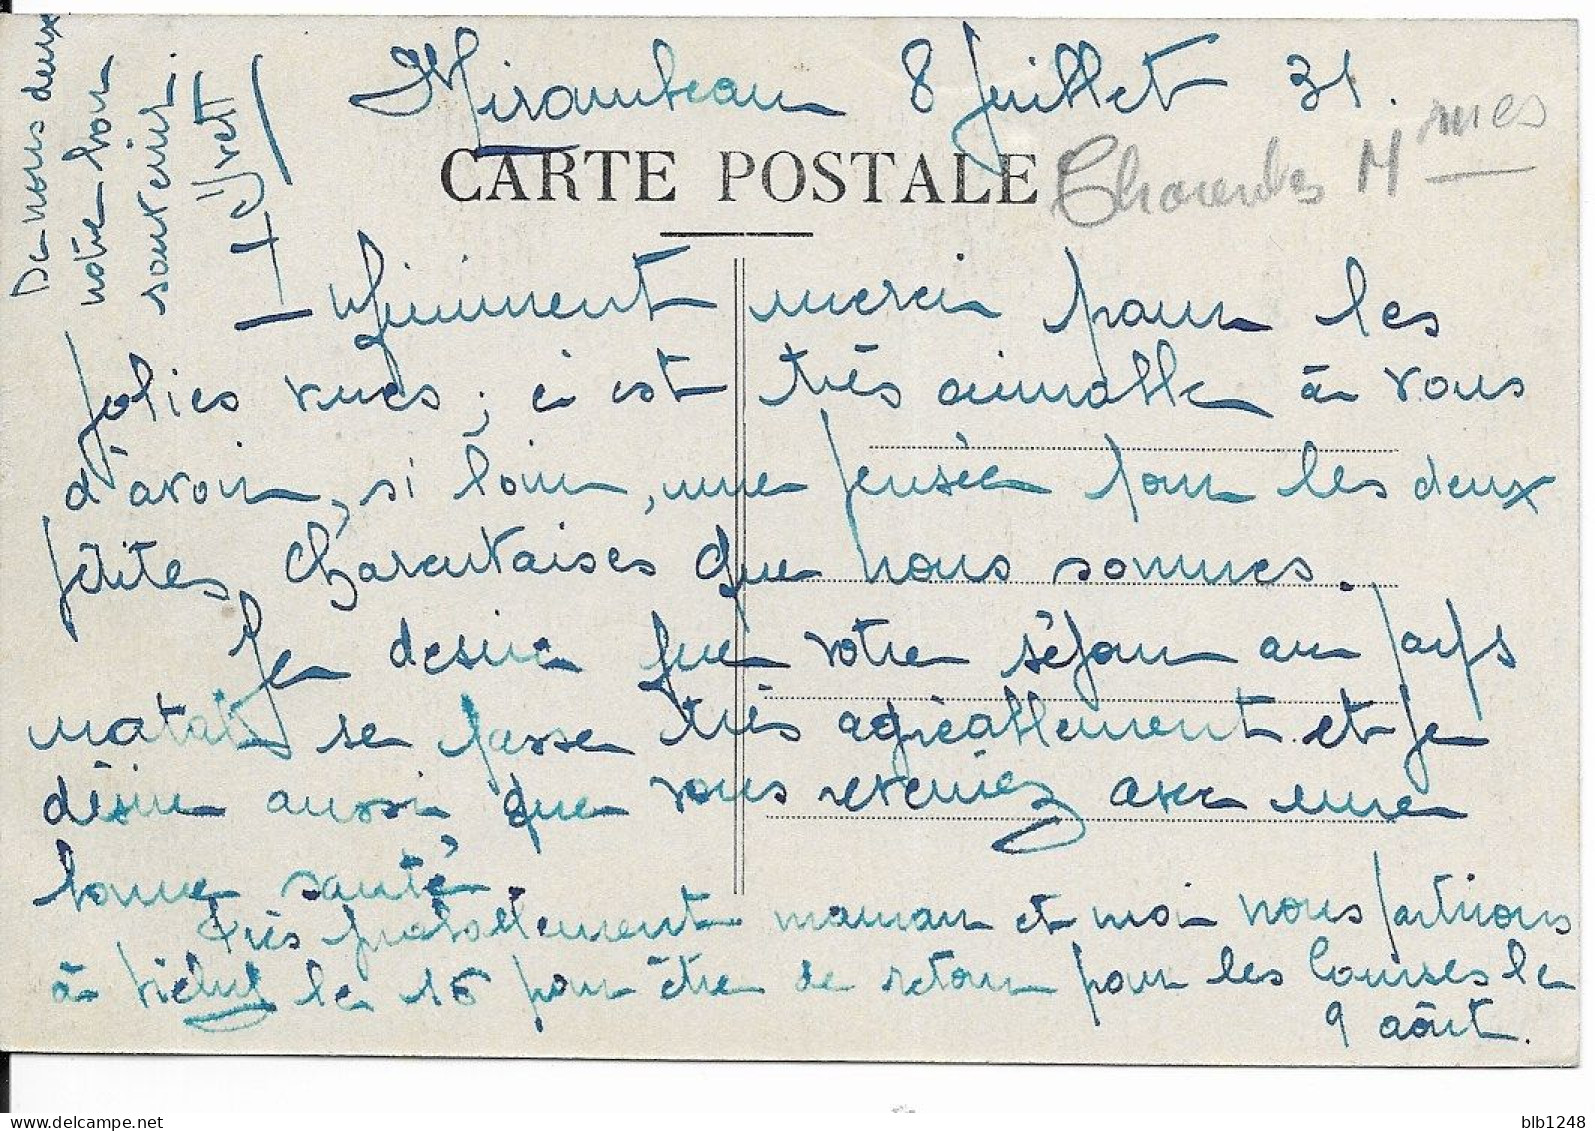 Mirambeau 8 Juillet 31.
CARTE POSTALE
Charentes M mes
Infiniment merci pour les
jolies vues ; c'est très aimable à vous
d'avoir, si loin, une pensée pour les deux
petites Charentaises que nous sommes.
Je desire que votre séjour au pays
se passe très agréablement et je
désire aussi que vous reveniez avec une
bonne santé.
Très probablement maman et moi nous partirons
à Vichy le 16 pour être de retour pour les Courses le
9 août.
De nous deux
notre bon
souvenir.